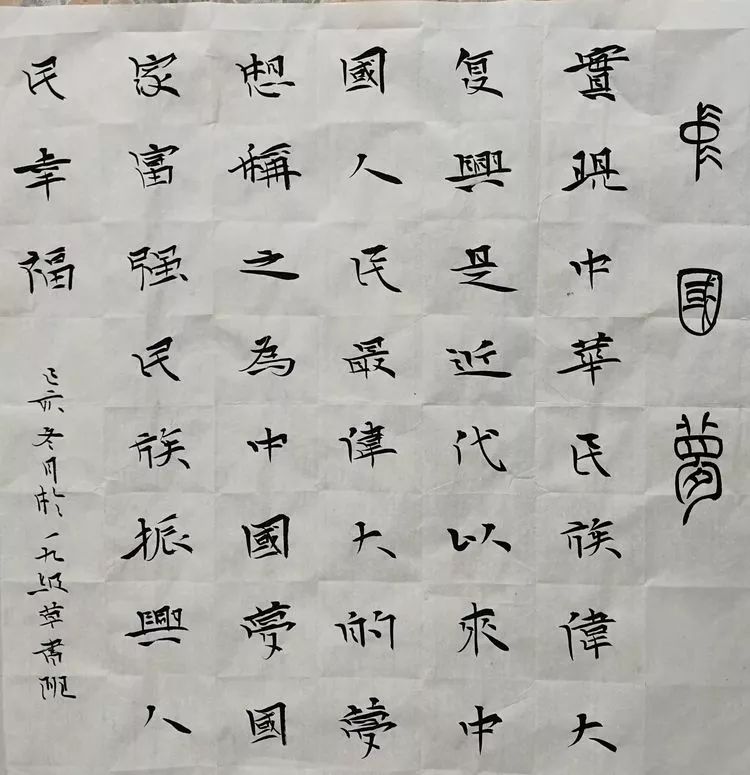 中國夢
實現中華民族偉大
复興是近代以來中
國人民最偉大的夢
想稱之為中國夢國
家富强民族振興人
民幸福
己亥冬月於一九級草書班